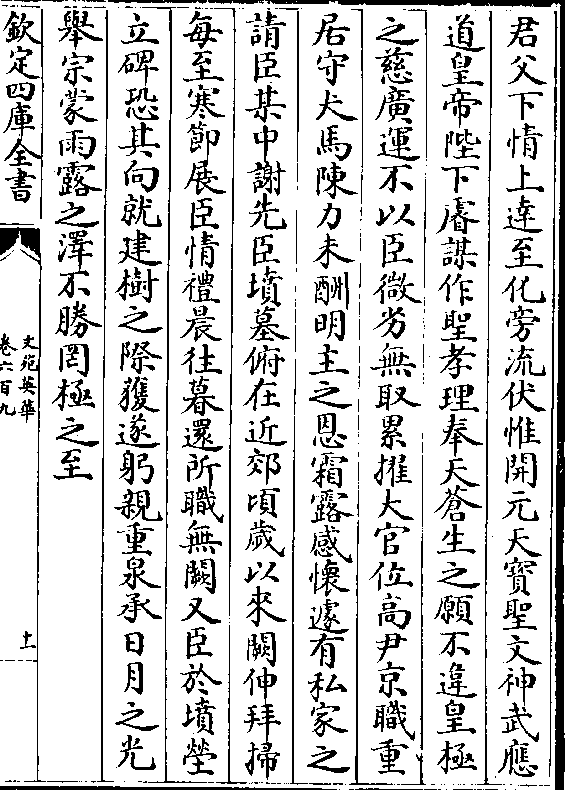 君父下情上達至化旁流伏惟開元天寳聖文神武應
道皇帝陛下膺謀作聖孝理奉天蒼生之願不違皇極
之慈廣運不以臣微劣無取累擢大官位高尹京職重
居守犬馬陳力未酬明主之恩霜露感懷遽有私家之
請臣某中謝先臣墳墓俯在近郊頃歲以來闕伸拜掃
每至寒節展臣情禮晨往暮還所職無闕又臣於墳塋
立碑恐其向就建樹之際獲遂躬親重泉承日月之光
舉宗蒙雨露之澤不勝罔極之至
欽定四庫全書
文苑英華
卷六百九
十一